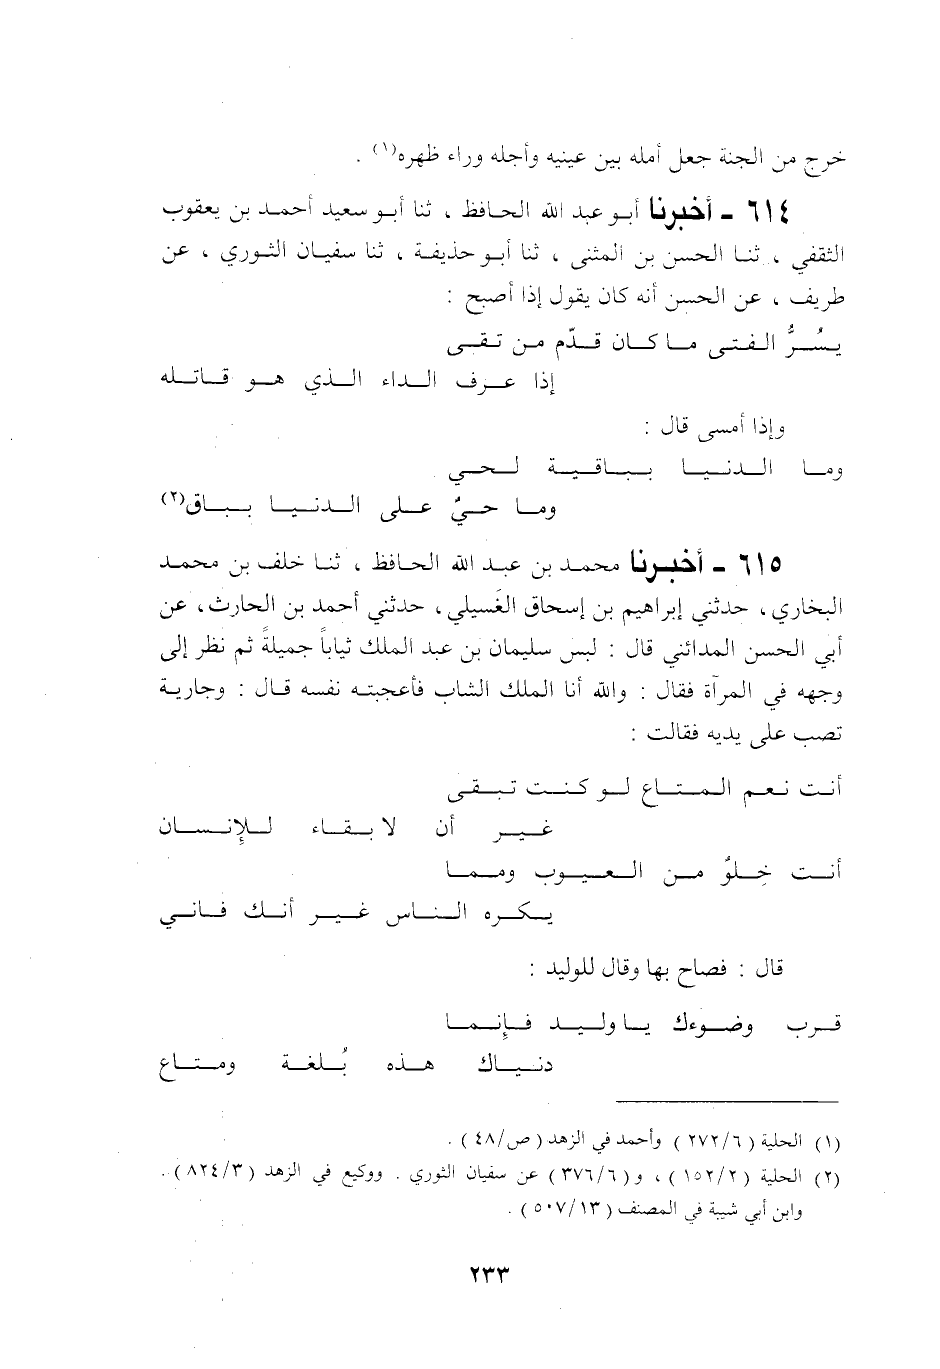 خرج من الجنة جعل أمله بين عينيه وأجله وراء ظهره(١) .
٦١٤ - أخبرنا أبو عبد الله الحافظ ، ثنا أبو سعيد أحمد بن يعقوب
الثقفي ، ثنا الحسن بن المثنى ، ثنا أبو حذيفة ، ثنا سفيان الثوري ، عن
طريف ، عن الحسن أنه كان يقول إذا أصبح :
يسُرُّ الفتى ما كان قدّم من تقى
إذا عرف الداء الذي هو قاتله
وإذا أمسى قال :
وما الدنيا بباقية لحي
وما حيٌّ على الدنيا بباق(٢)
٦١٥ - أخبرنا محمد بن عبد الله الحافظ ، ثنا خلف بن محمد
البخاري ، حدثني إبراهيم بن إسحاق الغسيلي ، حدثني أحمد بن الحارث ، عن
أبي الحسن المدائني قال : لبس سليمان بن عبد الملك ثياباً جميلةً ثم نظر إلى
وجهه في المرآة فقال : والله أنا الملك الشاب فأعجبته نفسه قال : وجارية
تصب على يديه فقالت :
أنت نعم المتاع لو كنت تبقى
غير أن لا بقاء للإنسان
أنت خلوٌ من العيوب ومما
يكره الناس غير أنك فاني
قال : فصاح بها وقال للوليد :
قرب وضوءك يا وليد فإنما
دنياك هذه بُلغة ومتاع
(١) الحلية ( ٢٧٢/٦ ) وأحمد في الزهد ( ص/٤٨ ) .
(٢) الحلية ( ١٥٢/٢ ) ، و ( ٣٧٦/٦ ) عن سفيان الثوري . ووكيع في الزهد ( ٨٢٤/٣ ) .
وابن أبي شيبة في المصنف ( ٥٠٧/١٣ ) .
٢٣٣